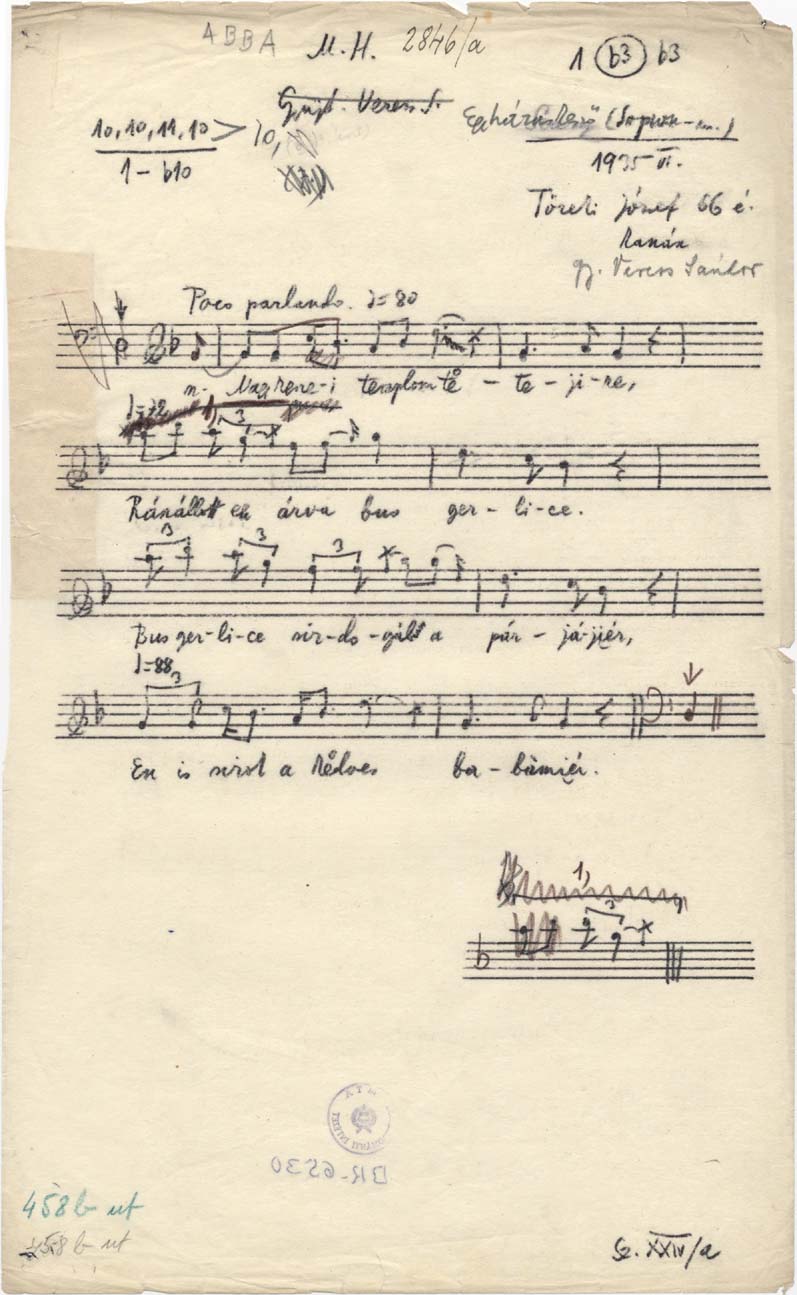 ABBA M. H. 2846/a 1 b3 b3
Gyűjt. Veress S.
10, 10, 11, 10 > 10,
1 – b10
(Sopron-m.)
1935 VI.
Töreki József 66 é.
kanász
gy. Veress Sándor
Poco parlando. ♩=80
n- Nagrenc-i templom tě – te – ji-re,
♩=72 1) 3
Rászállott ety árva bus ger – li-ce.
3 3 3
Bus ger-li-ce sir-do-gált a pár – já-jiér,
♩=88
3
En is sirok a kedves ba – bámiér.
1)
3
BR-6530
458 b ut
458 b ut
Sz. XXIV/a